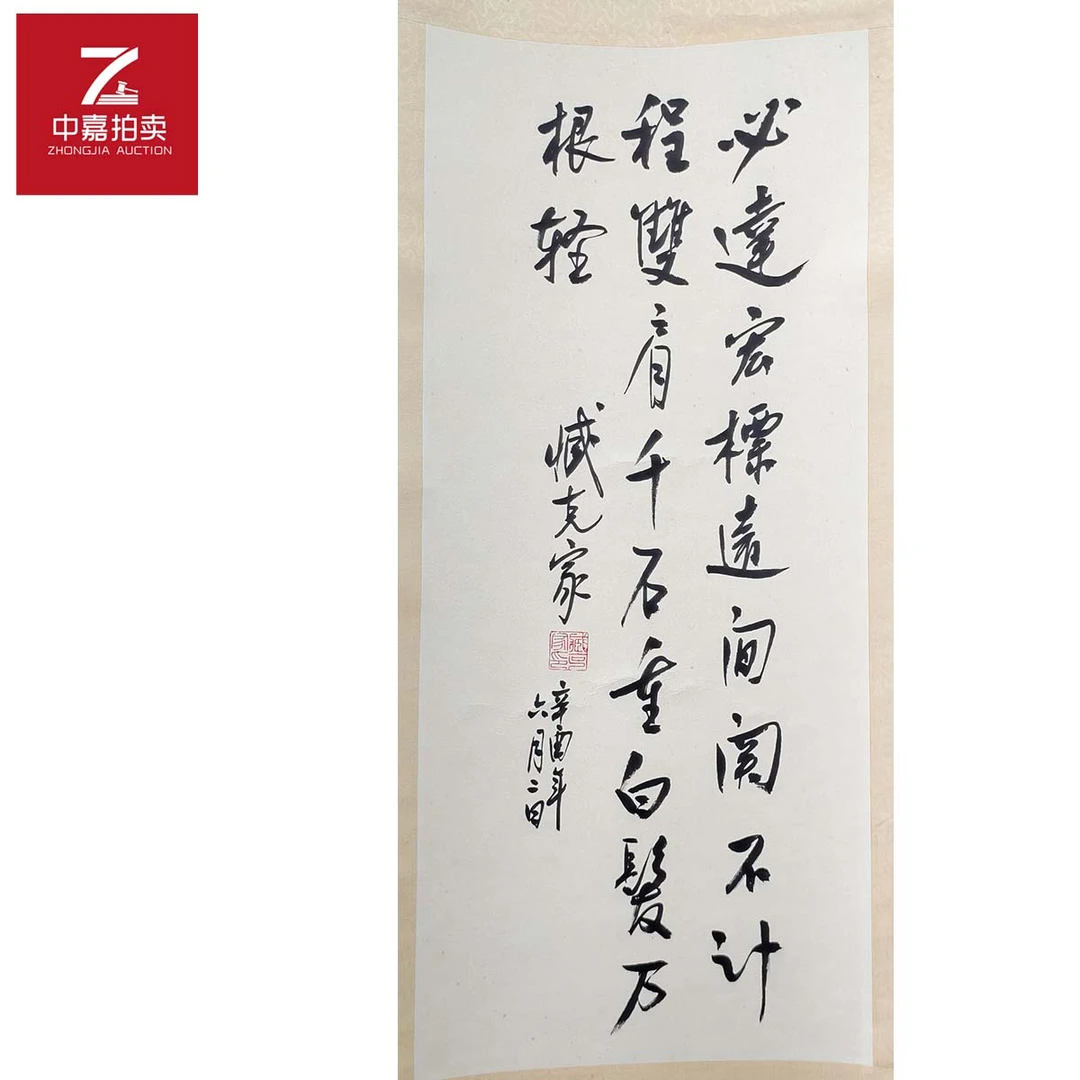 中嘉拍卖
ZHONGJIA AUCTION
必達宏標遠间関不计
程雙肩千石重白髮万
根轻
臧克家
臧克家印
辛酉年
六月二日